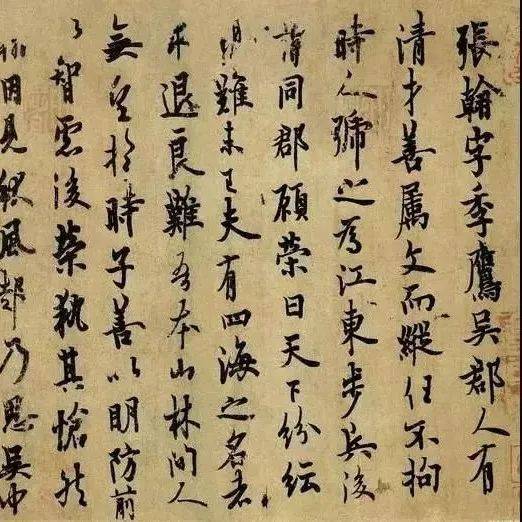 張翰字季鷹吳郡人有
清才善属文而縱任不拘
時人號之為江東步兵後
謂同郡顧榮曰天下紛紜
禍難未已夫有四海之名者
求退良難吾本山林間人
無望於時子善以明防前
以智慮後榮執其愴然
翰因見秋風起乃思吳中